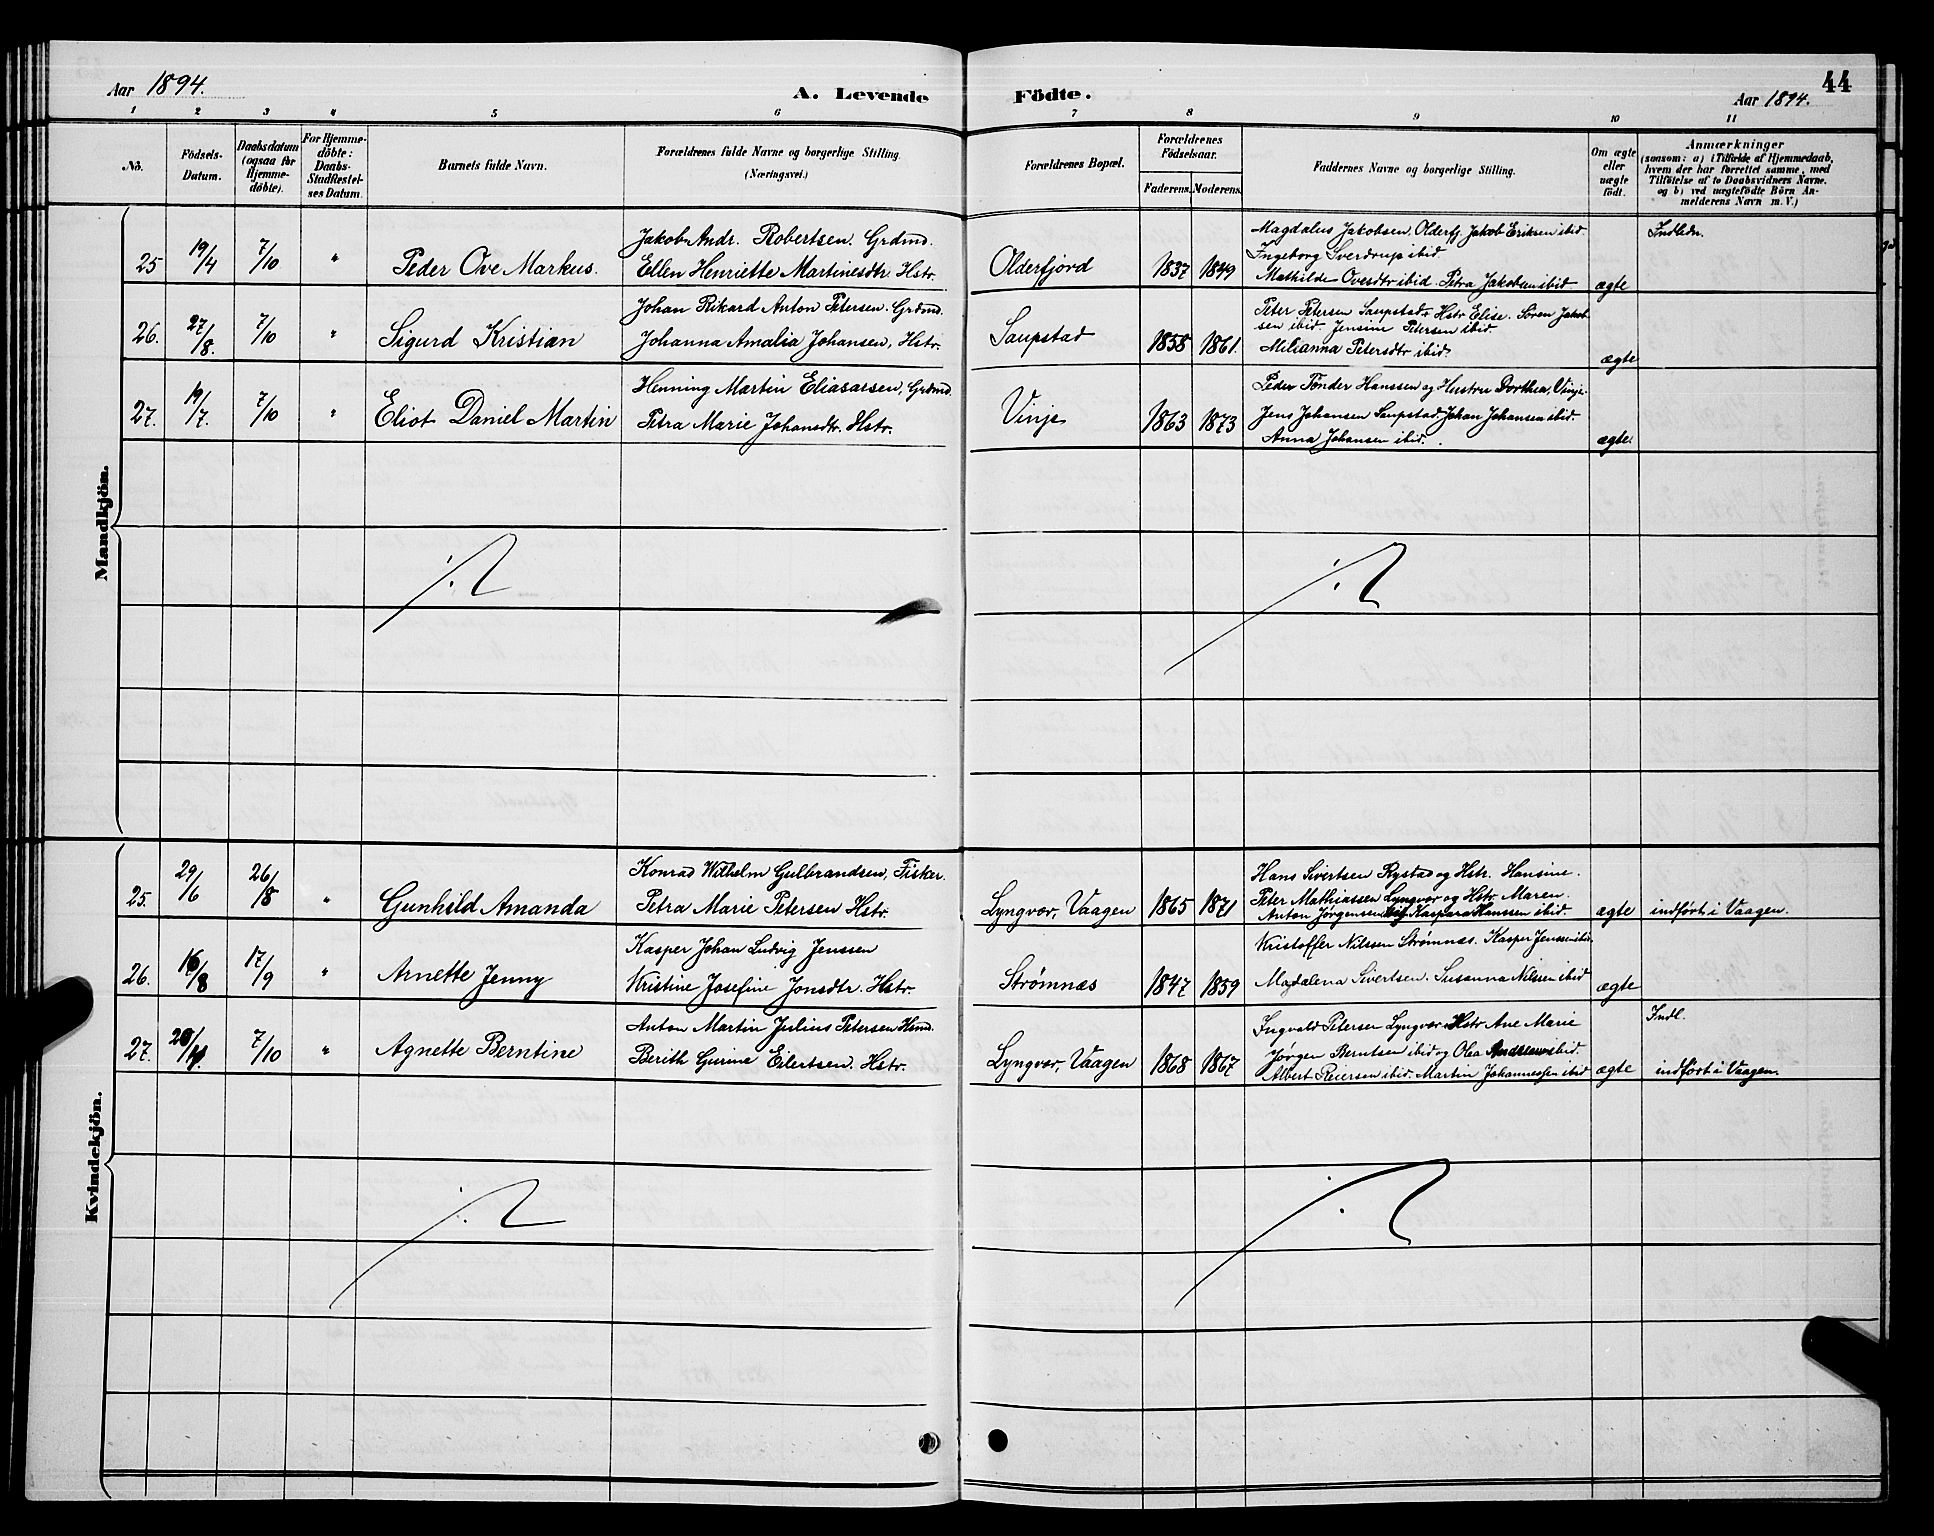 Aar 1894.
A. Levende Födte.
44
Aar 1894.
1 2 3 4 5 6 7 8 9 10 11
No.
Födsels-Datum.
Daabsdatum (ogsaa for Hjemmedöbte).
For Hjemmedöbte: Daabs-Stadfestelses Datum.
Barnets fulde Navn.
Forældrenes fulde Navne og borgerlige Stilling. (Næringsvei.)
Forældrenes Bopæl.
Forældrenes Födselsaar.
Faderens. Moderens.
Faddernes Navne og borgerlige Stilling.
Om ægte eller uægte födt.
Anmærkninger
(saasom: a) i Tilfælde af Hjemmedaab, hvem der har forrettet samme, med Tilföielse af to Daabsvidners Navne, og b) ved uægtefödte Börn Anmelderens Navn m. V.)
Mandkjön.
25 19/4 7/10 " Peder Ove Markus.
Jakob Andr. Robertsen. Grdmd.
Ellen Henriette Martinesdtr. Hstr.
Olderfjord 1837 1849
Magdalus Jakobsen, Olderfj. Jakob Eriksen ibid.
Ingeborg Sverdrup ibid.
Mathilde Ovesdtr ibid. Petra Jakobsen ibid.
ægte
Indledn.
26. 27/8. 7/10 " Sigurd Kristian
Johan Rikard Anton Petersen. Grdmd.
Johanna Amalia Johansen, Hstr.
Saupstad 1858 1861.
Peter Petersen Saupstad, Hstr Elise. Sören Jakobsen ibid. Jensine Petersen ibid.
Milianna Petersdtr ibid.
ægte
27. 19/7. 7/10 " Eliot Daniel Martin
Henning Martin Eliasarsen, Grdmd.
Petra Marie Johansdtr. Hstr.
Vinje 1863 1873
Peder Tönder Hanssen og Hustru Dorthea, Vinje.
Jens Johansen Saupstad. Johan Johansen ibid.
Anna Johansen ibid.
ægte.
Kvindekjön.
25. 29/6 26/8 " Gunhild Amanda
Konrad Wilhelm Gulbrandsen, Fisker.
Petra Marie Petersen Hstr.
Lyngvær, Vaagen 1865 1871
Hans Sivertsen Rystad og Hstr. Hansine.
Peter Mathiassen Lyngvær og Hstr Maren.
Anton Jørgensen Kaspara Hanssen ibid.
ægte
indført i Vaagen.
26. 16/8 17/9 " Arnette Jenny
Kasper Johan Ludvig Jenssen
Kristine Josefine Jonsdtr. Hstr.
Strømnæs 1847 1859
Kristoffer Nilssen Strømnæs. Kasper Jenssen ibid.
Magdalena Sivertsen. Susanna Nilssen ibid
ægte
27. 7/10 " Agnette Berntine
Anton Martin Julius Petersen Hsmd.
Berith Gurine Eilertsen. Hstr.
Lyngvær, Vaagen 1868 1867
Ingvald Petersen Lyngvær Hstr Ane Marie
Jørgen Berntsen ibid og Olea Andersen ibid.
Albert Reiersen ibid. Martin Johannessen ibid
ægte
Indl.
indført i Vaagen.